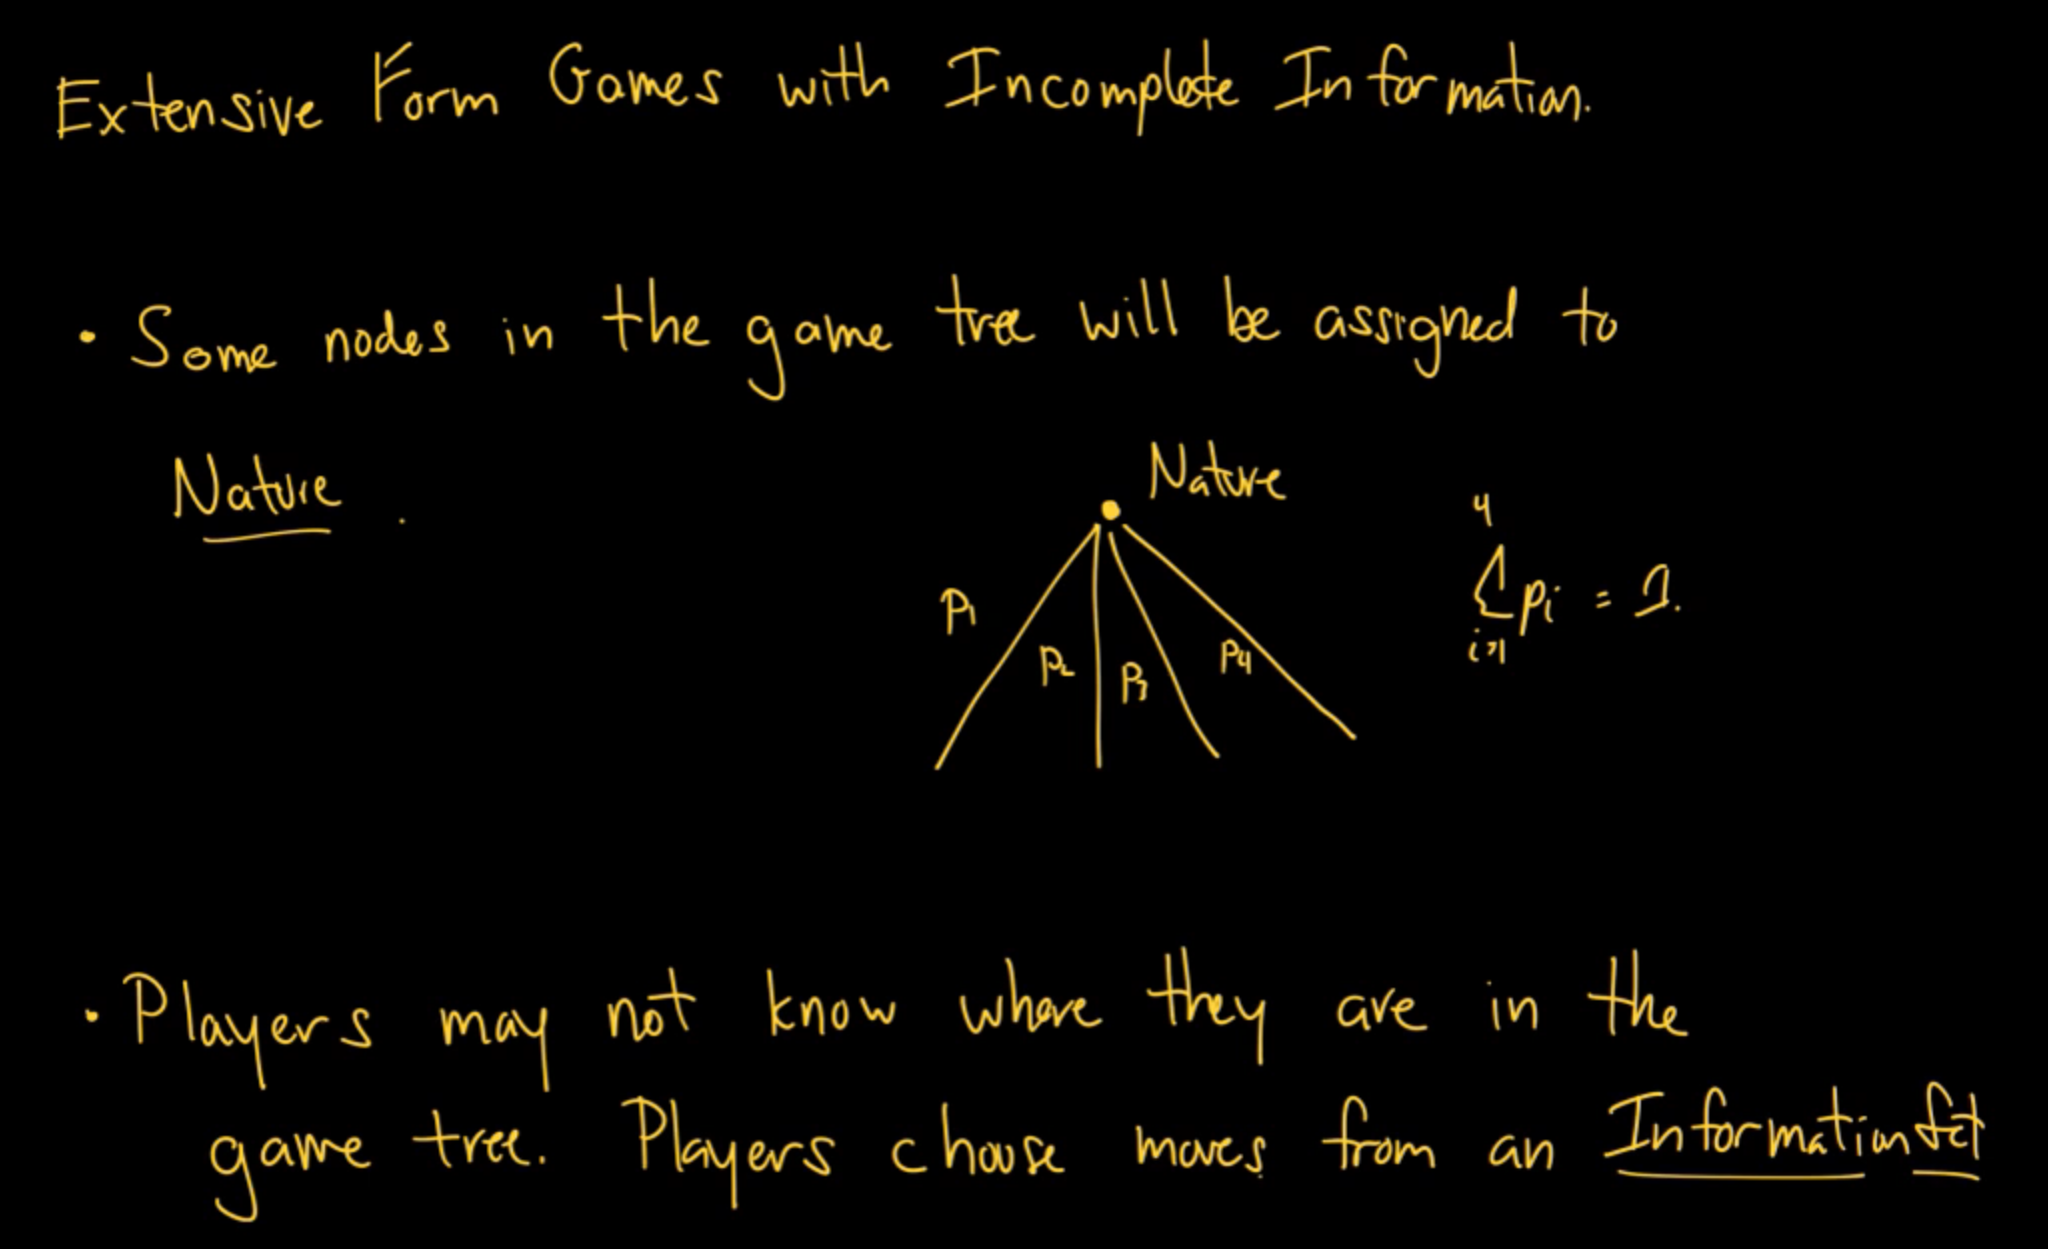 Extensive Form Games with Incomplete Information.
• Some nodes in the game tree will be assigned to
Nature.
Nature
p1
p2
p3
p4
4
∑ pi = 1.
i=1
• Players may not know where they are in the
game tree. Players choose moves from an Information Set